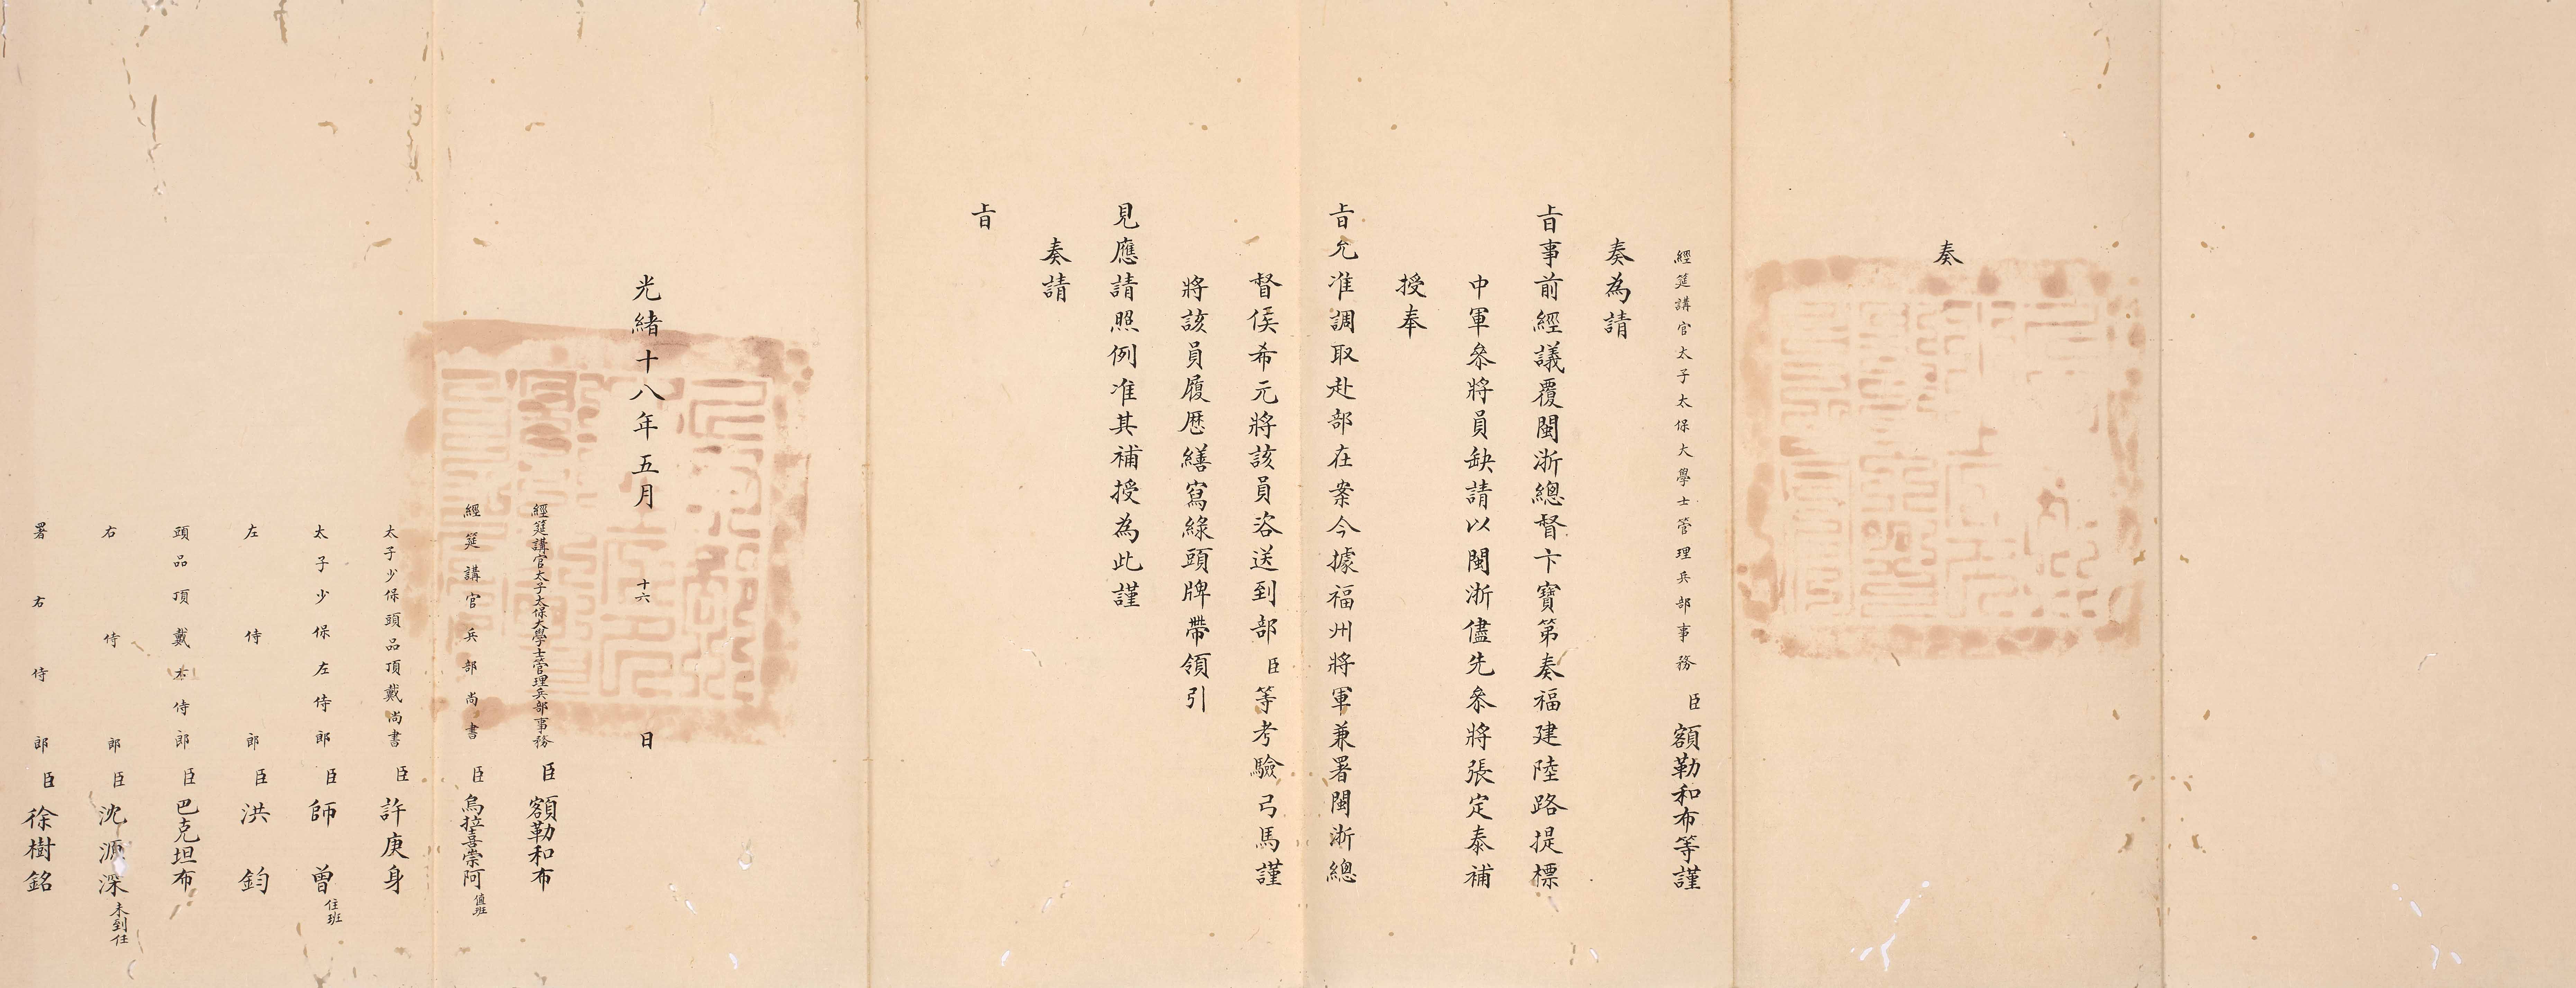 奏
經筵講官太子太保大學士管理兵部事務臣額勒和布等謹
奏為請
旨事前經議覆閩浙總督卞寶第奏福建陸路提標
中軍叅將員缺請以閩浙儘先叅將張定泰補
授奉
旨允准調取赴部在案今據福州將軍兼署閩浙總
督侯希元將該員咨送到部臣等考驗弓馬謹
將該員履歷繕寫綠頭牌帶領引
見應請照例准其補授為此謹
奏請
旨
光緒十八年五月十六日
經筵講官太子太保大學士管理兵部事務臣額勒和布
經筵講官兵部尚書臣烏拉喜崇阿值班
太子少保頭品頂戴尚書臣許庚身
太子少保左侍郎臣師曾住班
左侍郎臣洪鈞
頭品頂戴右侍郎臣巴克坦布
右侍郎臣沈源深未到任
署右侍郎臣徐樹銘